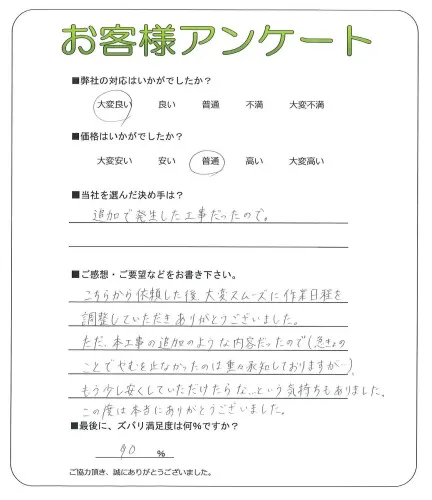 お客様アンケート
■弊社の対応はいかがでしたか？
大変良い 良い 普通 不満 大変不満
■価格はいかがでしたか？
大変安い 安い 普通 高い 大変高い
■当社を選んだ決め手は？
追加で発生した工事だったので。
■ご感想・ご要望などをお書き下さい。
こちらから依頼した後、大変スムーズに作業日程を
調整していただきありがとうございました。
ただ、本工事の追加のような内容だったので(急きょの
ことでやむを止なかったのは重々承知しておりますが…)、
もう少し安くしていただけたらな…という気持ちもありました。
この度は本当にありがとうございました。
■最後に、ズバリ満足度は何%ですか？
90 %
ご協力頂き、誠にありがとうございました。